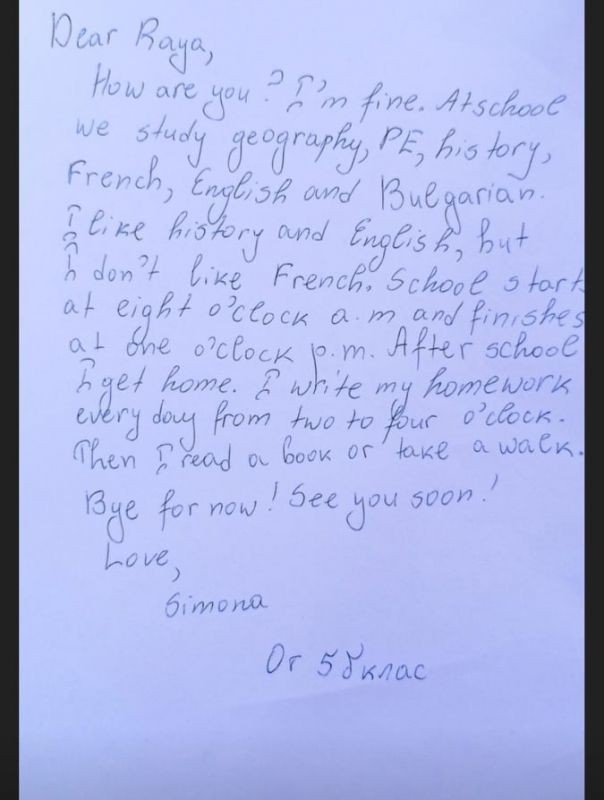 Dear Raya,
How are you? I'm fine. At school
we study geography, PE, history,
French, English and Bulgarian.
I like history and English, but
I don't like French. School starts
at eight o'clock a.m and finishes
at one o'clock p.m. After school
I get home. I write my homework
every day from two to four o'clock.
Then I read a book or take a walk.
Bye for now! See you soon!
Love,
Simona
От 5б клас